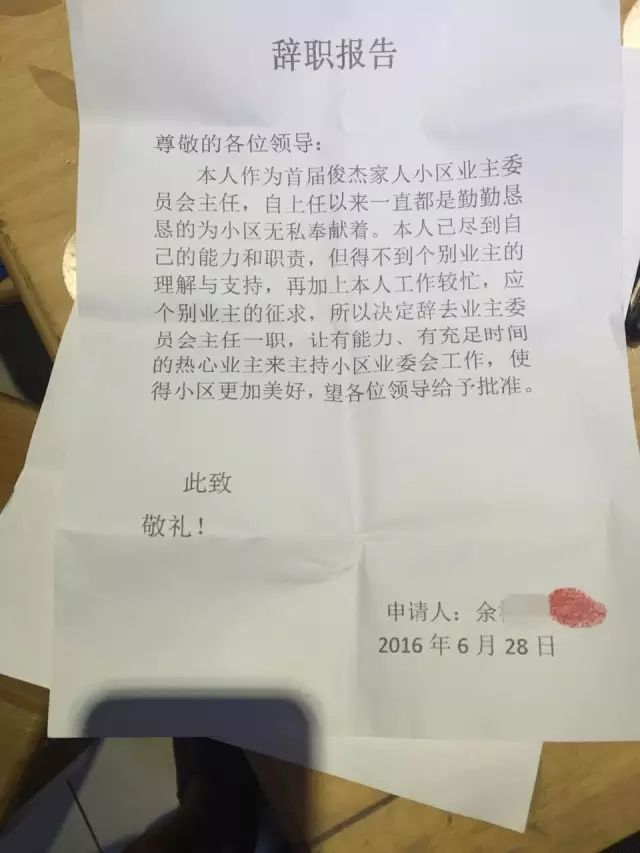 辞职报告
尊敬的各位领导：
本人作为首届俊杰家人小区业主委
员会主任，自上任以来一直都是勤勤恳
恳的为小区无私奉献着。本人已尽到自
己的能力和职责，但得不到个别业主的
理解与支持，再加上本人工作较忙，应
个别业主的征求，所以决定辞去业主委
员会主任一职，让有能力、有充足时间
的热心业主来主持小区业委会工作，使
得小区更加美好，望各位领导给予批准。
此致
敬礼！
申请人：余
2016 年 6 月 28 日